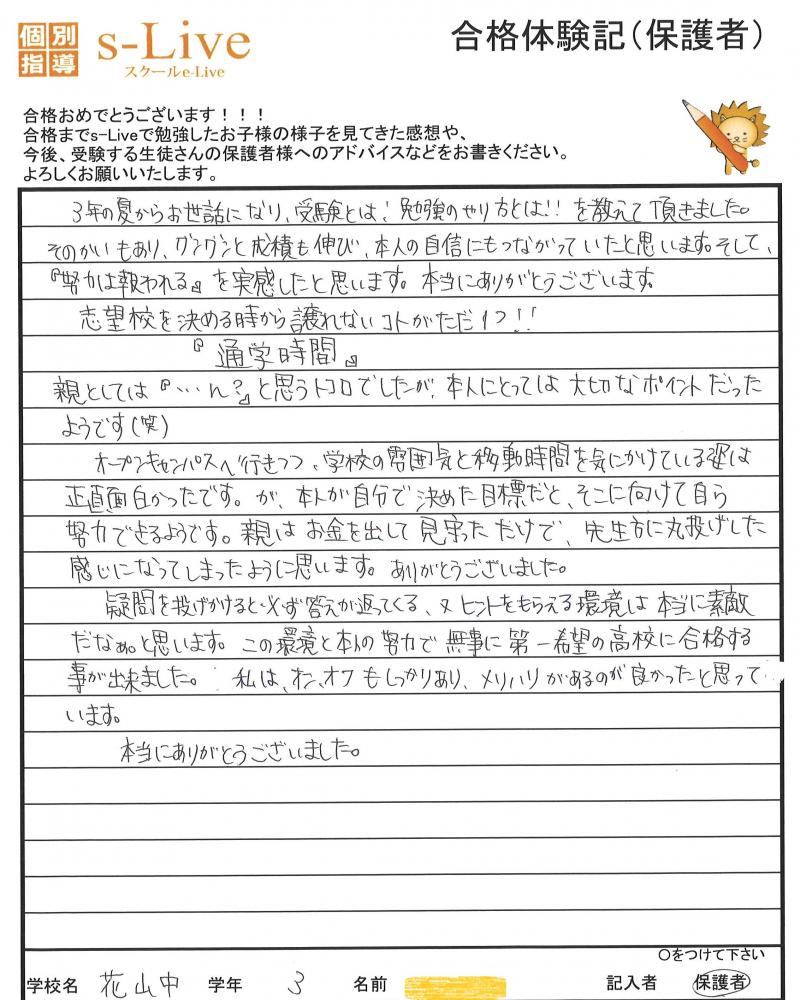 個別指導
s-Live
スクールe-Live
合格体験記(保護者)
合格おめでとうございます!!!
合格までs-Liveで勉強したお子様の様子を見てきた感想や、
今後、受験する生徒さんの保護者様へのアドバイスなどをお書きください。
よろしくお願いいたします。
3年の夏からお世話になり、受験とは!勉強のやり方とは!!を教えて頂きました。
そのかいもあり、グングンと成績も伸び、本人の自信にもつながっていたと思います。そして、
『努力は報われる』を実感したと思います。本当にありがとうございます。
志望校を決める時から譲れないコトがただ1つ!!
『通学時間』
親としては『…ん?』と思うトコロでしたが、本人にとっては大切なポイントだった
ようです(笑)
オープンキャンパスへ行きつつ、学校の雰囲気と移動時間を気にかけている姿は
正直面白かったです。が、本人が自分で決めた目標だと、そこに向けて自ら
努力できるようです。親はお金を出して見守っただけで、先生方に丸投げした
感じになってしまったように思います。ありがとうございました。
疑問を投げかけると必ず答えが返ってくる、又ヒントをもらえる環境は本当に素敵
だなぁ。と思います。この環境と本人の努力で無事に第一希望の高校に合格する
事が出来ました。私は、オン、オフもしっかりあり、メリハリがあるのが良かったと思って
います。
本当にありがとうございました。
○をつけて下さい
学校名 花山中 学年 3 名前 記入者 保護者